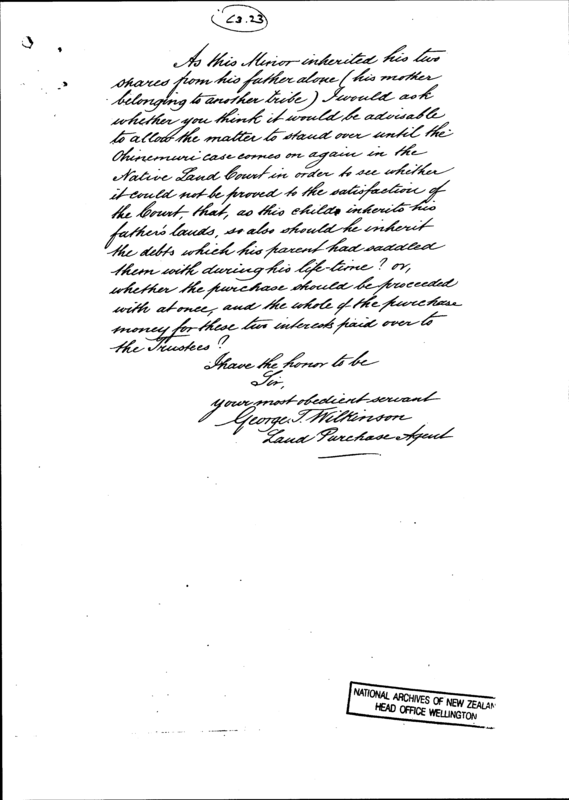 L3.23
As this Minor inherited his two
shares from his father alone (his mother
belonging to another tribe) I would ask
whether you think it would be advisable
to allow the matter to stand over until the
Ohinemuri case comes on again in the
Native Land Court in order to see whether
it could not be proved to the satisfaction of
the Court, that, as this child inherits his
father's lands, so also should he inherit
the debts which his parent had saddled
them with during his life-time? or,
whether the purchase should be proceeded
with at once, and the whole of the purchase
money for these two interests paid over to
the Trustees?
I have the honor to be
Sir,
your most obedient servant
George T. Wilkinson
Land Purchase Agent
NATIONAL ARCHIVES OF NEW ZEALAN
HEAD OFFICE WELLINGTON